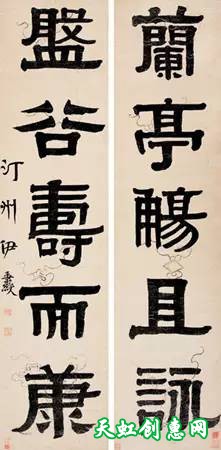 蘭亭觴且詠
盤谷壽而康
汀州伊秉綬
天虹创惠网